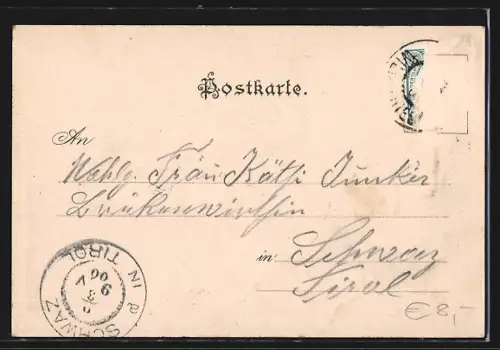 Postkarte.
An
Wohlg. Frau Käthi Junker
Brückenwirthin
in Schwaz
Tirol
SCHWAZ IN TIROL
€ 8,-